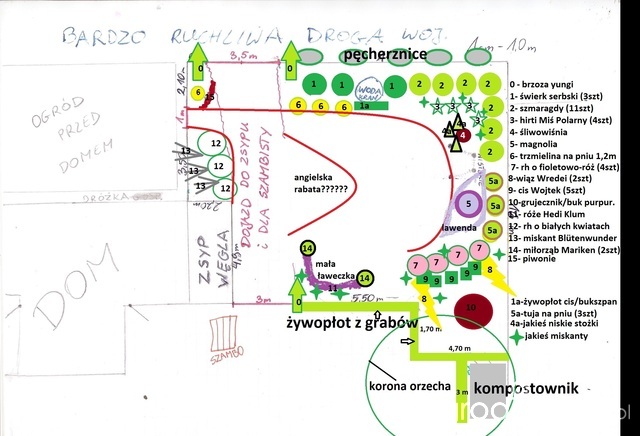 BARDZO RUCHLIWA DROGA WOJ.
1cm - 1.0m
3,5m
pęcherznice
0
0
2,10m
1m
OGRÓD
PRZED
DOMEM
DRÓŻKA
DOM
6
15
12
12
12
13
13
13
ZSYP
WĘGLA
4,5m
DOJAZD DO ZSYPU
i DLA SZAMBISTY
SZAMBO
3m
6 6 6
1 1
WODA
1
1a
2 2 2 2
2
2
2
3 3 3 3
4a
4
angielska
rabata??????
5
5a
5a
5a
lawenda
7 7 7 7
9 9 9 9
8
8
10
14
14
11
mała
ławeczka
0
5,50m
żywopłot z grabów
1,70 m
4,70 m
3 m
korona orzecha
kompostownik
0 - brzoza yungi
1- świerk serbski (3szt)
2- szmaragdy (11szt)
3- hirti Miś Polarny (4szt)
4- śliwowiśnia
5- magnolia
6- trzmielina na pniu 1,2m
7- rh o fioletowo-róż (4szt)
8-wiąz Wredei (2szt)
9- cis Wojtek (5szt)
10-grujecznik/buk purpur.
11- róże Hedi Klum
12- rh o białych kwiatach
13- miskant Blütenwunder
14- miłorząb Mariken (2szt)
15- piwonie
1a-żywopłot cis/bukszpan
5a-tuja na pniu (3szt)
4a-jakieś niskie stożki
jakieś miskanty